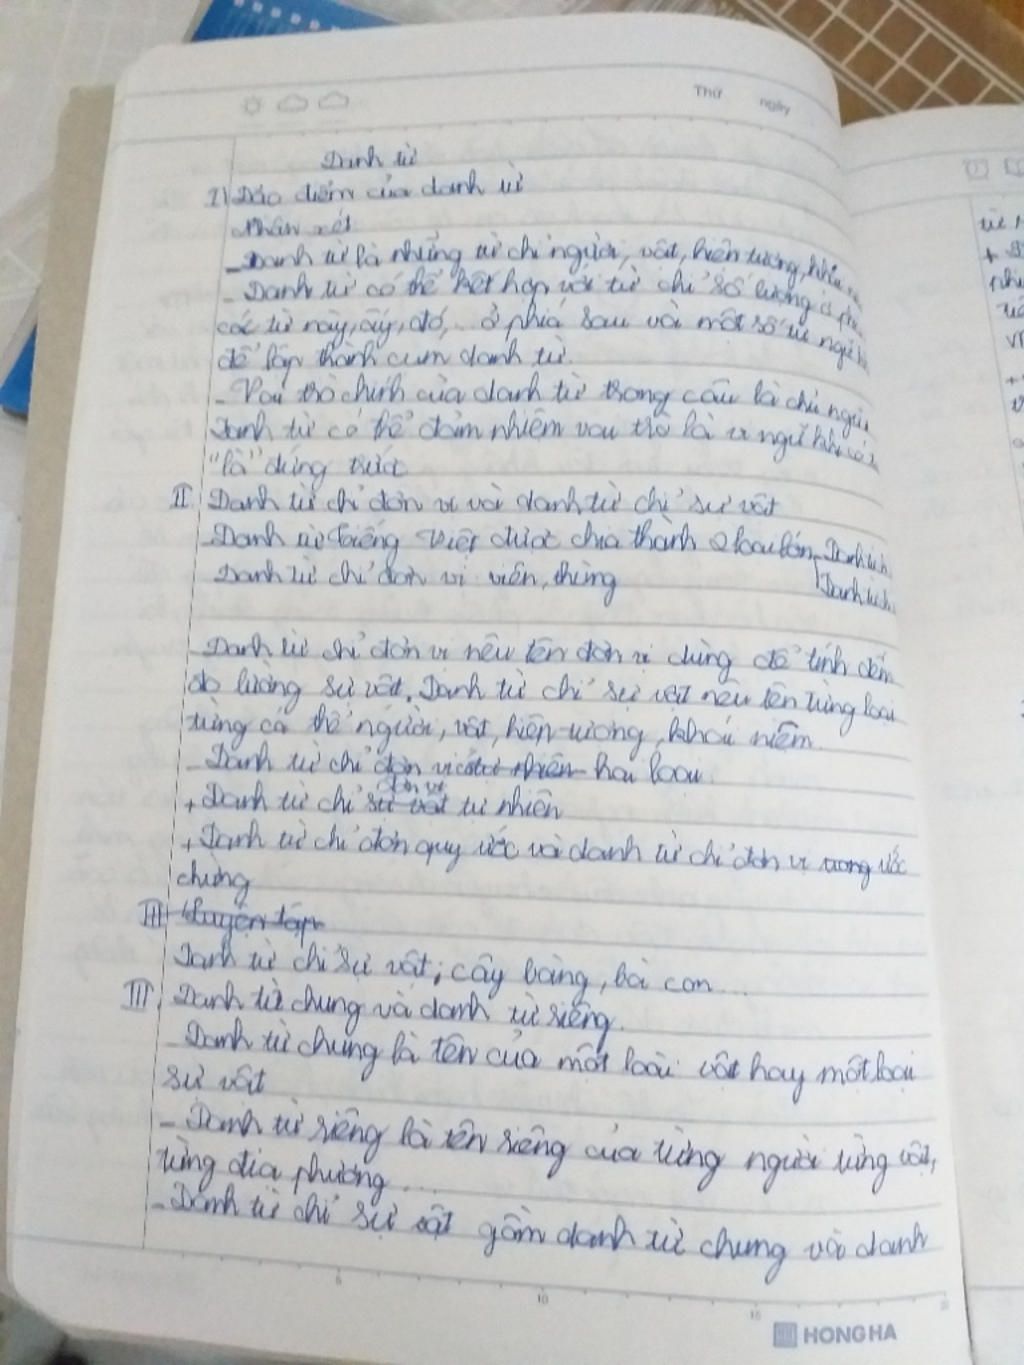 Thứ ngày
Danh từ
I) Đặc điểm của danh từ
Nhận xét
- Danh từ là những từ chỉ người, vật, hiện tượng, khái
- Danh từ có thể kết hợp với từ chỉ số lượng ở phía
các từ này, ấy, đó,... ở phía sau và một số từ ngữ
để lập thành cụm danh từ.
- Vai trò chính của danh từ trong câu là chủ ngữ.
Danh từ có thể đảm nhiệm vai trò là vị ngữ khi có
"là" đứng trước
II Danh từ chỉ đơn vị và danh từ chỉ sự vật
- Danh từ Tiếng Việt được chia thành 2 loại lớn Danh từ ch
Danh từ chỉ đơn vị viên, thúng Danh từ ch
- Danh từ chỉ đơn vị nêu tên đơn vị dùng để tính đếm
đo lường sự vật. Danh từ chỉ sự vật nêu tên từng loại
từng cá thể người, vật, hiện tượng, khái niệm.
- Danh từ chỉ đơn vị có tự nhiên hai loại
đơn vị
+ Danh từ chỉ sự vật tự nhiên
+ Danh từ chỉ đơn quy ước và danh từ chỉ đơn vị trong ước
chừng
III Luyện tập
Danh từ chỉ sự vật; cây bàng, bà con...
III Danh từ chung và danh từ riêng.
- Danh từ chung là tên của một loài vật hay một loại
sự vật
- Danh từ riêng là tên riêng của từng người từng vật,
từng địa phương...
- Danh từ chỉ sự vật gồm danh từ chung và danh
5 10 15
HONG HA